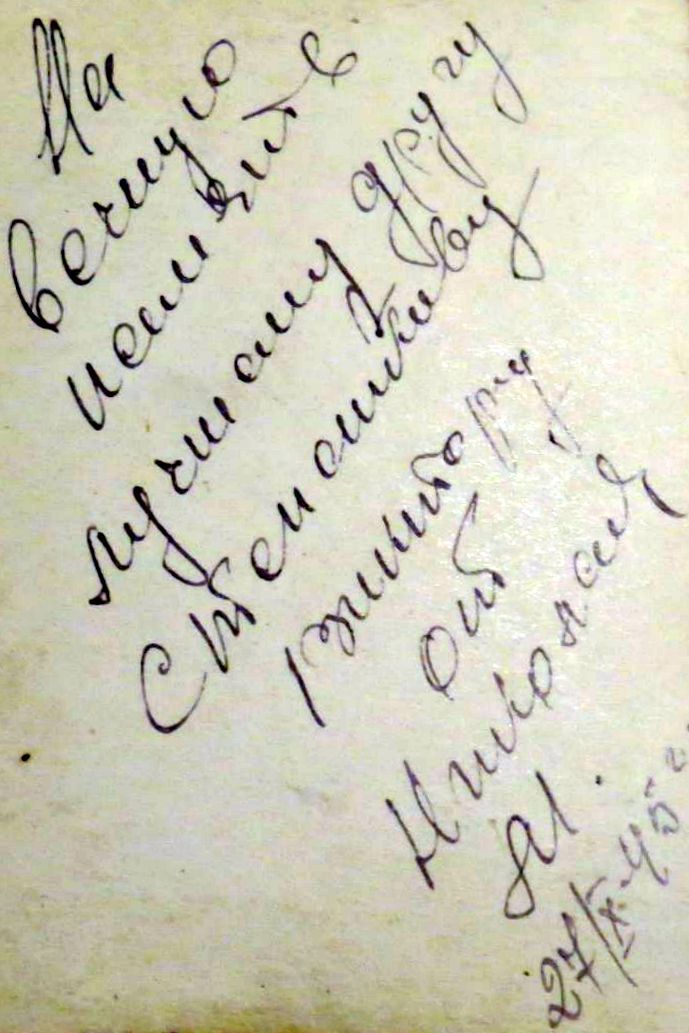 На
вечную
память
лучшему другу
Степашкину
Виктору
от
Николая
Я.
27/IX-45г